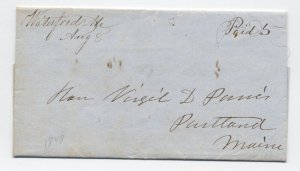 Waterford Me
Aug 8
Paid 5
Hon Virgil D Parris
Portland
Maine
1848